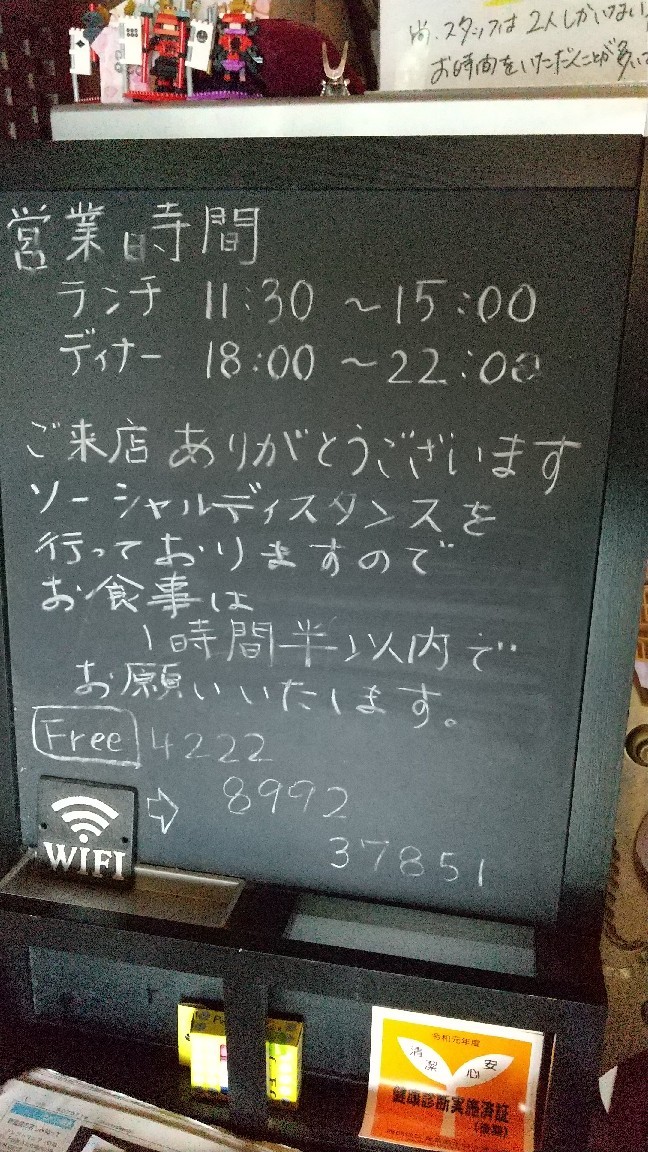 尚、スタッフは2人しかいない
お時間をいただくことが多い
営業時間
ランチ 11:30 ～15:00
ディナー 18:00 ～22:00
ご来店ありがとうございます
ソーシャルディスタンスを
行っておりますので
お食事は
1時間半以内で
お願いいたします。
Free 4222
8992
37851
WIFI
令和元年度
清潔 安心
健康診断実施済証
(後期)